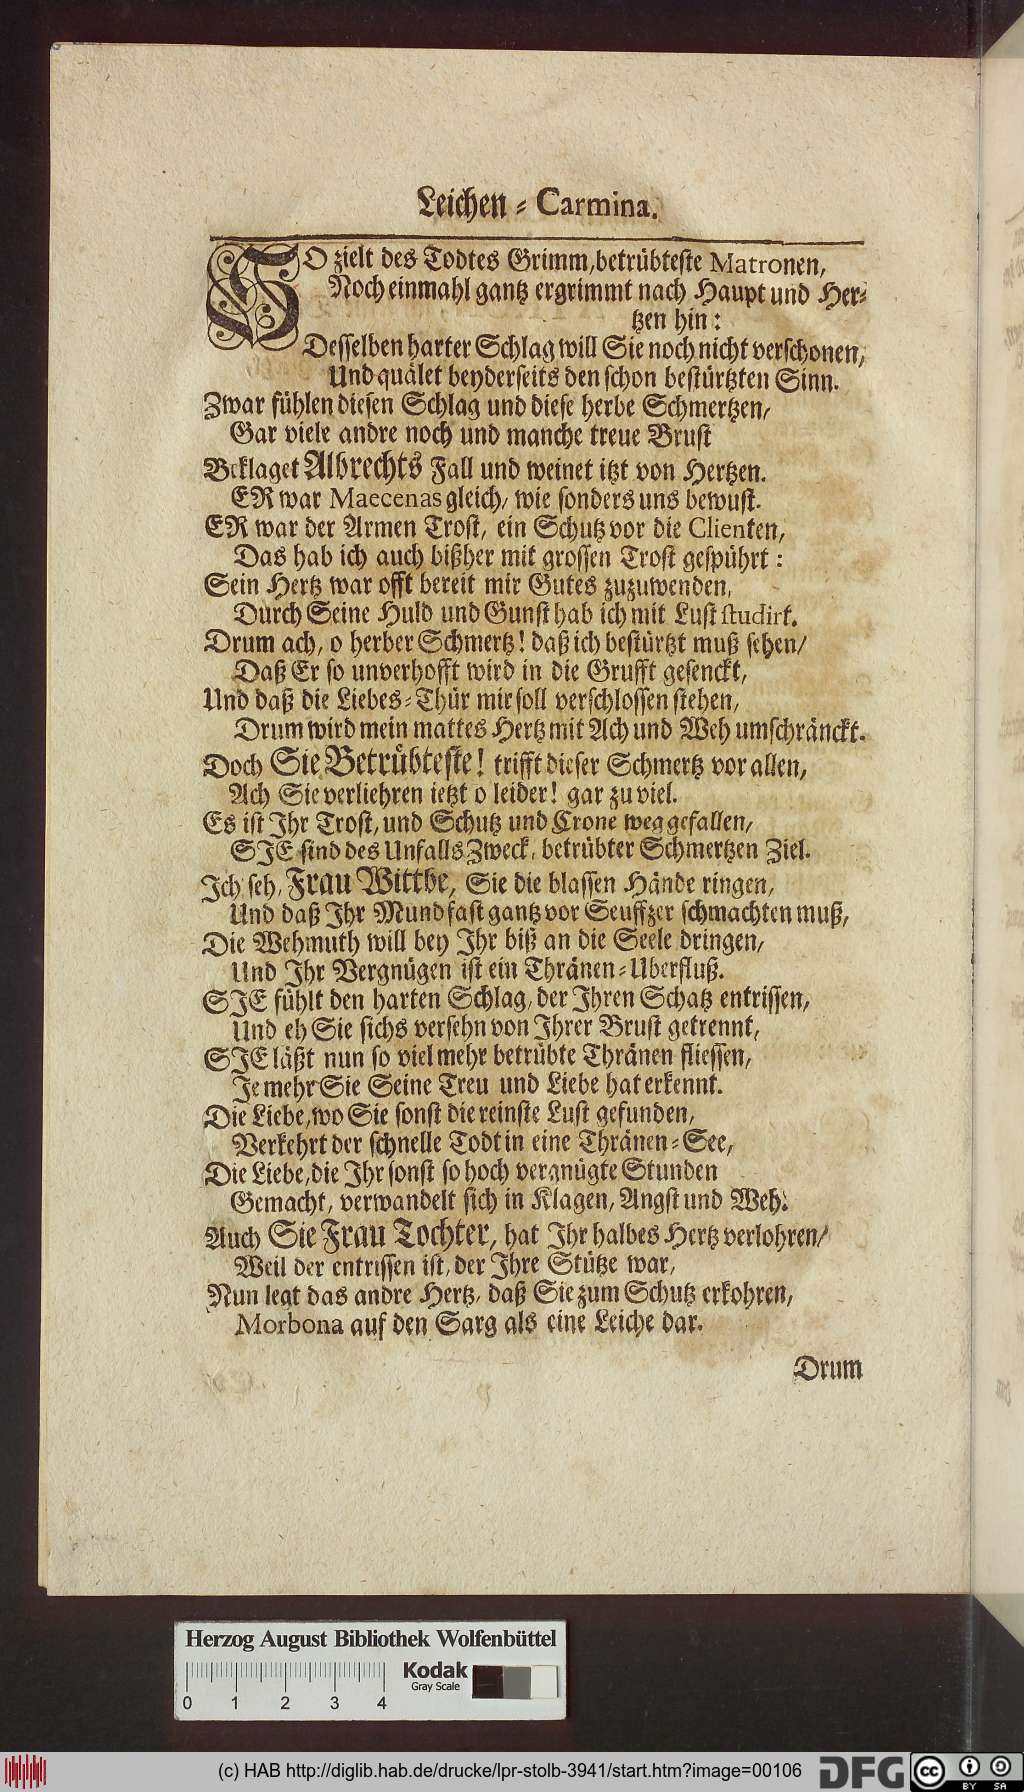 Leichen-Carmina.
SO zielt des Todtes Grimm, betrübteste Matronen,
Noch einmahl gantz ergrimmt nach Haupt und Her-
tzen hin:
Desselben harter Schlag will Sie noch nicht verschonen,
Und quälet beyderseits den schon bestürtzten Sinn.
Zwar fühlen diesen Schlag und diese herbe Schmertzen/
Gar viele andre noch und manche treue Brust
Beklaget Albrechts Fall und weinet itzt von Hertzen.
ER war Maecenas gleich/ wie sonders uns bewust.
ER war der Armen Trost, ein Schutz vor die Clienten,
Das hab ich auch bißher mit grossen Trost gespührt:
Sein Hertz war offt bereit mir Gutes zuzuwenden,
Durch Seine Huld und Gunst hab ich mit Lust studirt.
Drum ach, o herber Schmertz! daß ich bestürtzt muß sehen/
Daß Er so unverhofft wird in die Grufft gesenckt,
Und daß die Liebes-Thür mir soll verschlossen stehen,
Drum wird mein mattes Hertz mit Ach und Weh umschränckt.
Doch Sie, Betrübteste! trifft dieser Schmertz vor allen,
Ach Sie verliehren ietzt o leider! gar zu viel.
Es ist Ihr Trost, und Schutz und Crone weg gefallen/
SIE sind des Unfalls Zweck, betrübter Schmertzen Ziel.
Ich seh, Frau Wittbe, Sie die blassen Hände ringen,
Und daß Ihr Mund fast gantz vor Seuffzer schmachten muß,
Die Wehmuth will bey Ihr biß an die Seele dringen/
Und Ihr Vergnügen ist ein Thränen-Uberfluß.
SIE fühlt den harten Schlag, der Ihren Schatz entrissen,
Und eh Sie sichs versehn von Ihrer Brust getrennt,
SIE läßt nun so viel mehr betrübte Thränen fliessen,
Je mehr Sie Seine Treu und Liebe hat erkennt.
Die Liebe, wo Sie sonst die reinste Lust gefunden,
Verkehrt der schnelle Todt in eine Thränen-See,
Die Liebe, die Ihr sonst so hoch vergnügte Stunden
Gemacht, verwandelt sich in Klagen, Angst und Weh.
Auch Sie Frau Tochter, hat Ihr halbes Hertz verlohren/
Weil der entrissen ist, der Ihre Stütze war,
Nun legt das andre Hertz, daß Sie zum Schutz erkohren,
Morbona auf den Sarg als eine Leiche dar.
Drum
Herzog August Bibliothek Wolfenbüttel
Kodak
Gray Scale
0 1 2 3 4
(c) HAB http://diglib.hab.de/drucke/lpr-stolb-3941/start.htm?image=00106
DFG
cc BY SA